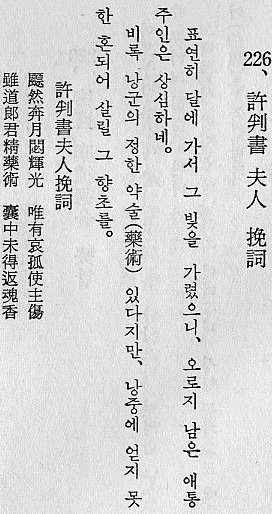 226、 許判書 夫人 挽詞
표연히 달에 가서 그 빛을 가렸으니、 오로지 남은 애통
주인은 상심하네。
비록 낭군의 정한 약술(藥術) 있다지만、 낭중에 얻지 못
한 혼되어 살릴 그 향초를。
許判書夫人挽詞
飄然奔月閟輝光 唯有哀孤使主傷
雖道郞君精藥術 囊中未得返魂香